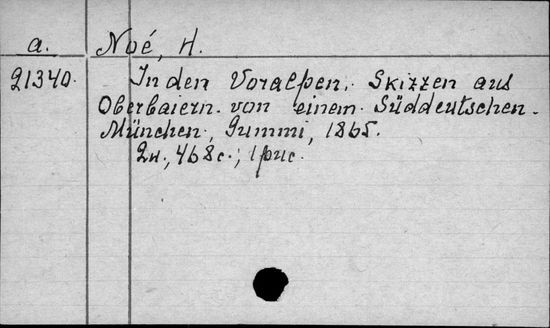 a. Noé, H.
21340. In den Voralpen. Skizzen aus
Oberbaiern von einem Süddeutschen.
München, Gummi, 1865.
2н., 468с.; 1рис.